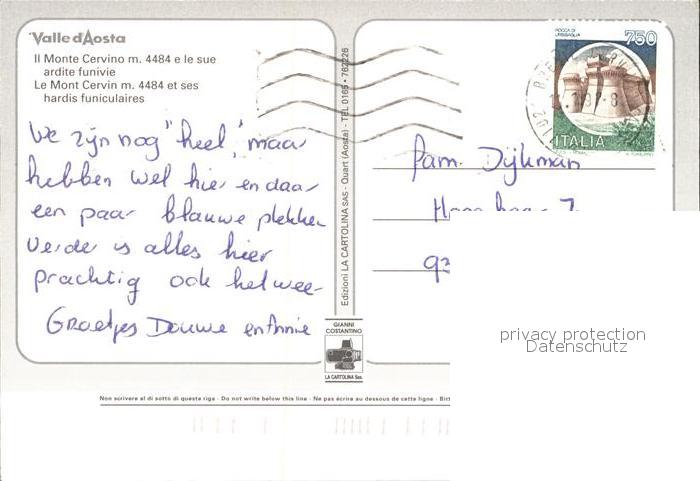 Valle d'Aosta
Il Monte Cervino m. 4484 e le sue
ardite funivie
Le Mont Cervin m. 4484 et ses
hardis funiculaires
We zijn nog "heel", maar
hebben wel hier en daar
een paar blauwe plekken
verder is alles hier
prachtig ook het weer
Groetjes Douwe en Annie
Edizioni LA CARTOLINA SAS - Quart (Aosta) - TEL 0165 • 762226
GIANNI
COSTANTINO
LA CARTOLINA Sas.
ROCCA DI
URBISAGLIA
750
ITALIA
Fam. Dijkman
privacy protection
Datenschutz
Non scrivere al di sotto di questa riga - Do not write below this line - Ne pas écrire au dessous de cette ligne - Bitt